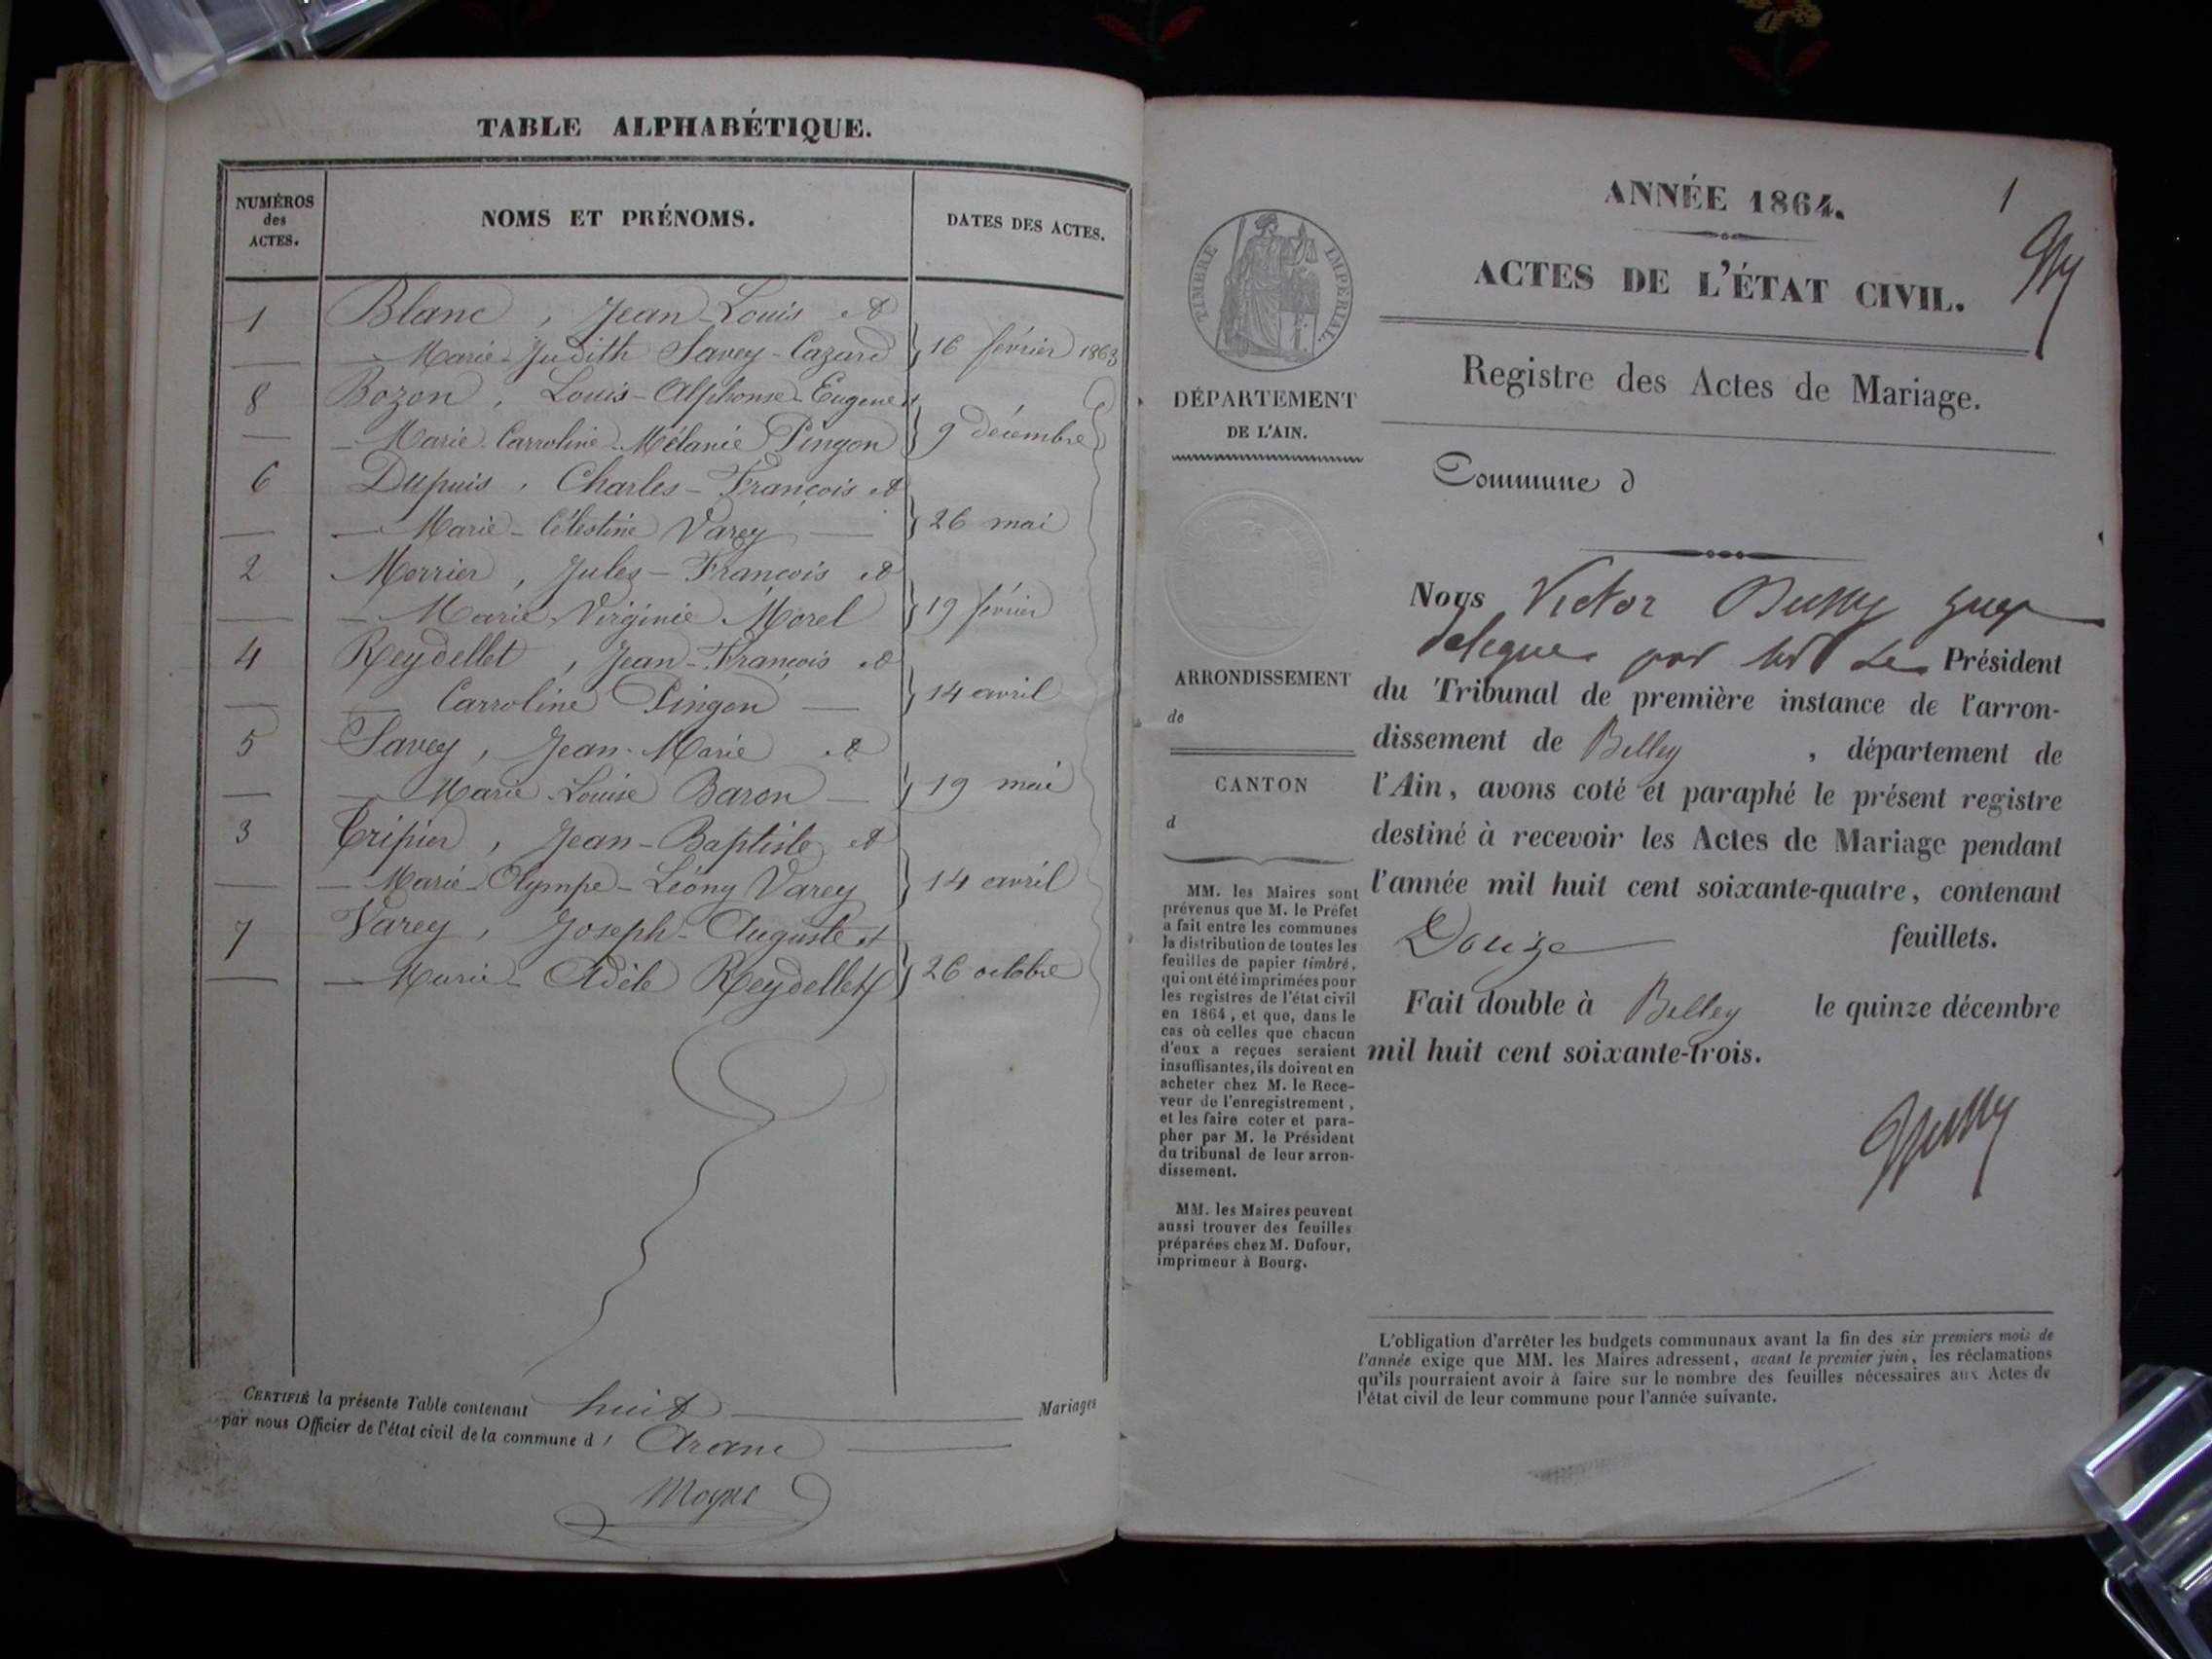 TABLE ALPHABÉTIQUE.
NUMÉROS
des
ACTES.
NOMS ET PRÉNOMS.
DATES DES ACTES.
1 Blanc, Jean-Louis et
— Marie-Judith Savey-Cazard } 16 février 1863
8 Bozon, Louis-Alphonse-Eugene et
— Marie-Carroline-Mélanie Pingon } 9 décembre
6 Dupuis, Charles-François et
— Marie-Célestine Varey — } 26 mai
2 Morrier, Jules-François et
— Marie-Virginie Morel } 19 février
4 Reydellet, Jean-François et
— Carroline Pingon — } 14 avril
5 Savey, Jean-Marie et
— Marie-Louise Baron — } 19 mai
3 Tripier, Jean-Baptiste et
— Marie-Olympe-Léony Varey } 14 avril
7 Varey, Joseph-Auguste et
— Marie-Adèle Reydellet } 26 octobre
CERTIFIÉ la présente Table contenant huit Mariages
par nous Officier de l'état civil de la commune d' Aranc
1
ANNÉE 1864.
ACTES DE L'ÉTAT CIVIL.
Registre des Actes de Mariage.
Commune d
TIMBRE IMPÉRIAL.
DÉPARTEMENT
DE L'AIN.
ARRONDISSEMENT
de
CANTON
d
MM. les Maires sont
prévenus que M. le Préfet
a fait entre les communes
la distribution de toutes les
feuilles de papier timbré,
qui ont été imprimées pour
les registres de l'état civil
en 1864, et que, dans le
cas où celles que chacun
d'eux a reçues seraient
insuffisantes, ils doivent en
acheter chez M. le Rece-
veur de l'enregistrement,
et les faire coter et para-
pher par M. le Président
du tribunal de leur arron-
dissement.
MM. les Maires peuvent
aussi trouver des feuilles
préparées chez M. Dufour,
imprimeur à Bourg.
Nous Victor Bussy juge
delegue par Mr Le Président
du Tribunal de première instance de l'arron-
dissement de Belley, département de
l'Ain, avons coté et paraphé le présent registre
destiné à recevoir les Actes de Mariage pendant
l'année mil huit cent soixante-quatre, contenant
Douze feuillets.
Fait double à Belley le quinze décembre
mil huit cent soixante-trois.
Bussy
L'obligation d'arrêter les budgets communaux avant la fin des six premiers mois de
l'année exige que MM. les Maires adressent, avant le premier juin, les réclamations
qu'ils pourraient avoir à faire sur le nombre des feuilles nécessaires aux Actes de
l'état civil de leur commune pour l'année suivante.